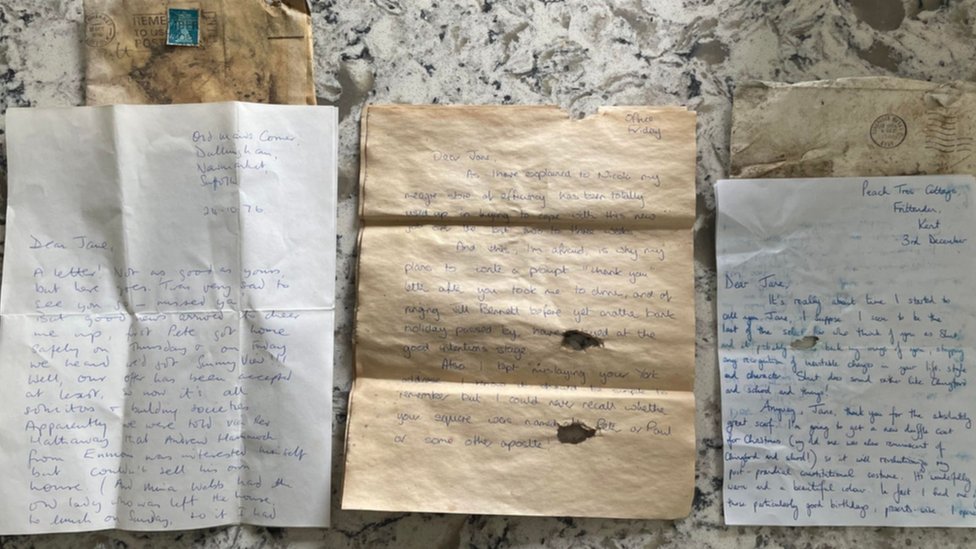 REME
TO U
POST
Old Maids Corner,
Dullingham,
Newmarket,
Suffolk
24.10.76
Dear Jane,
A letter! Not as good as yours,
but here goes. I was very sad to
see you go - missed ya
But good news arrived to cheer
me up, first Pete got home
safely on Thursday & on Friday
we heard we'd got Sunny View!!!
Well, our offer has been accepted
at least, so now it's all
solicitors & building societies
Apparently we were told via Rex
Hathaway that Andrew
from Emmon was interested himself
but couldn't sell his own
house. (And Maria Webb had the
old lady who was left the house,
to lunch on Sunday, so if I had
Office
Friday
Dear Jane,
As I have explained to Nicola my
meagre store of efficiency has been totally
used up in trying to cope with this new
job the last two to three weeks.
And this, I'm afraid, is why my
plans to write a prompt "thank you"
letter after you took me to dinner, and of
ringing Jill Bennett before yet another bank
holiday passed by, have stayed at the
good intentions stage.
Also I kept mislaying your York
address. I know it is to
remember but I could never recall whether
your square were named Pete or Paul
or some other apostle!
Peach Tree Cottage
Frittenden,
Kent
3rd December
Dear Jane,
It's really about time I started to
call you Jane, I suppose. I seem to be the
last of the set who think of you as Shut
and it's probably back my image of you, stopping
any recognition of inevitable changes in your life, style
and character. Shut does sound rather like Chingford
and school and things!
Anyway, Jane, thank you for the absolutely
great scarf. I'm going to get a new duffle coat
for Christmas (my old one was also reminiscent of
Chingford and school!) so it will revolutionise my
post-prandial constitutional costume. It's wonderfully
warm and a beautiful colour. In fact I had one
those particularly good birthdays, presents-wise. I